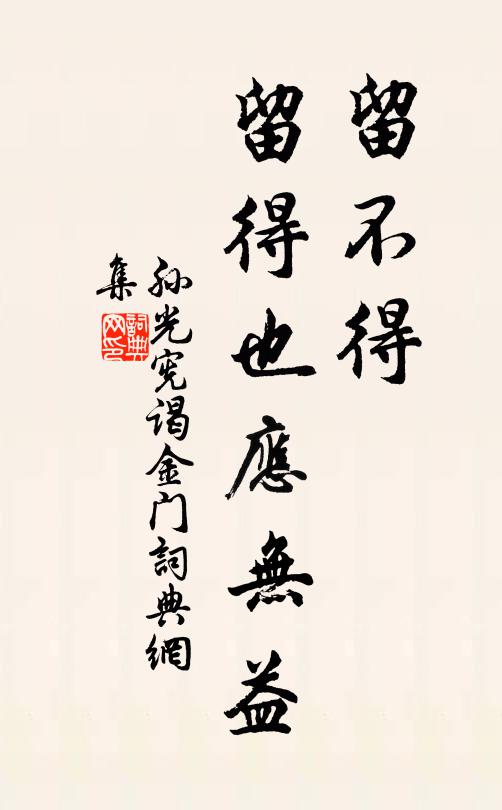 留不得
留得也應無益
孙光宪谒金门詞典網
集
詞典网印